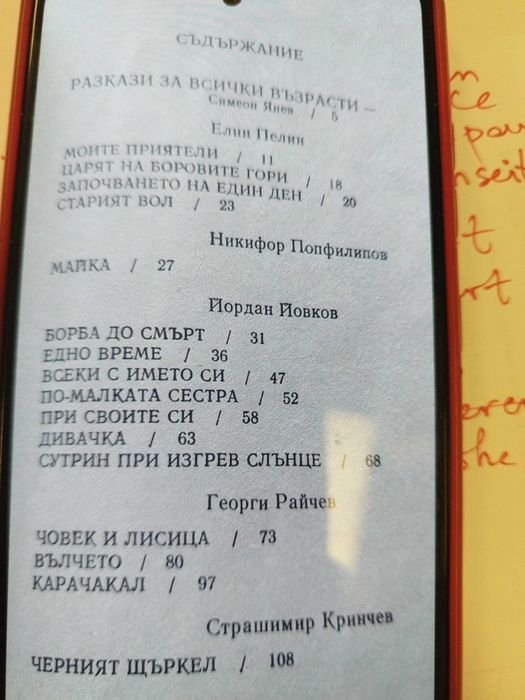 СЪДЪРЖАНИЕ
РАЗКАЗИ ЗА ВСИЧКИ ВЪЗРАСТИ —
Симеон Янев / 5
Елин Пелин
МОИТЕ ПРИЯТЕЛИ / 11
ЦАРЯТ НА БОРОВИТЕ ГОРИ / 18
ЗАПОЧВАНЕТО НА ЕДИН ДЕН / 20
СТАРИЯТ ВОЛ / 23
Никифор Попфилипов
МАЙКА / 27
Йордан Йовков
БОРБА ДО СМЪРТ / 31
ЕДНО ВРЕМЕ / 36
ВСЕКИ С ИМЕТО СИ / 47
ПО-МАЛКАТА СЕСТРА / 52
ПРИ СВОИТЕ СИ / 58
ДИВАЧКА / 63
СУТРИН ПРИ ИЗГРЕВ СЛЪНЦЕ / 68
Георги Райчев
ЧОВЕК И ЛИСИЦА / 73
ВЪЛЧЕТО / 80
КАРАЧАКАЛ / 97
Страшимир Кринчев
ЧЕРНИЯТ ЩЪРКЕЛ / 108